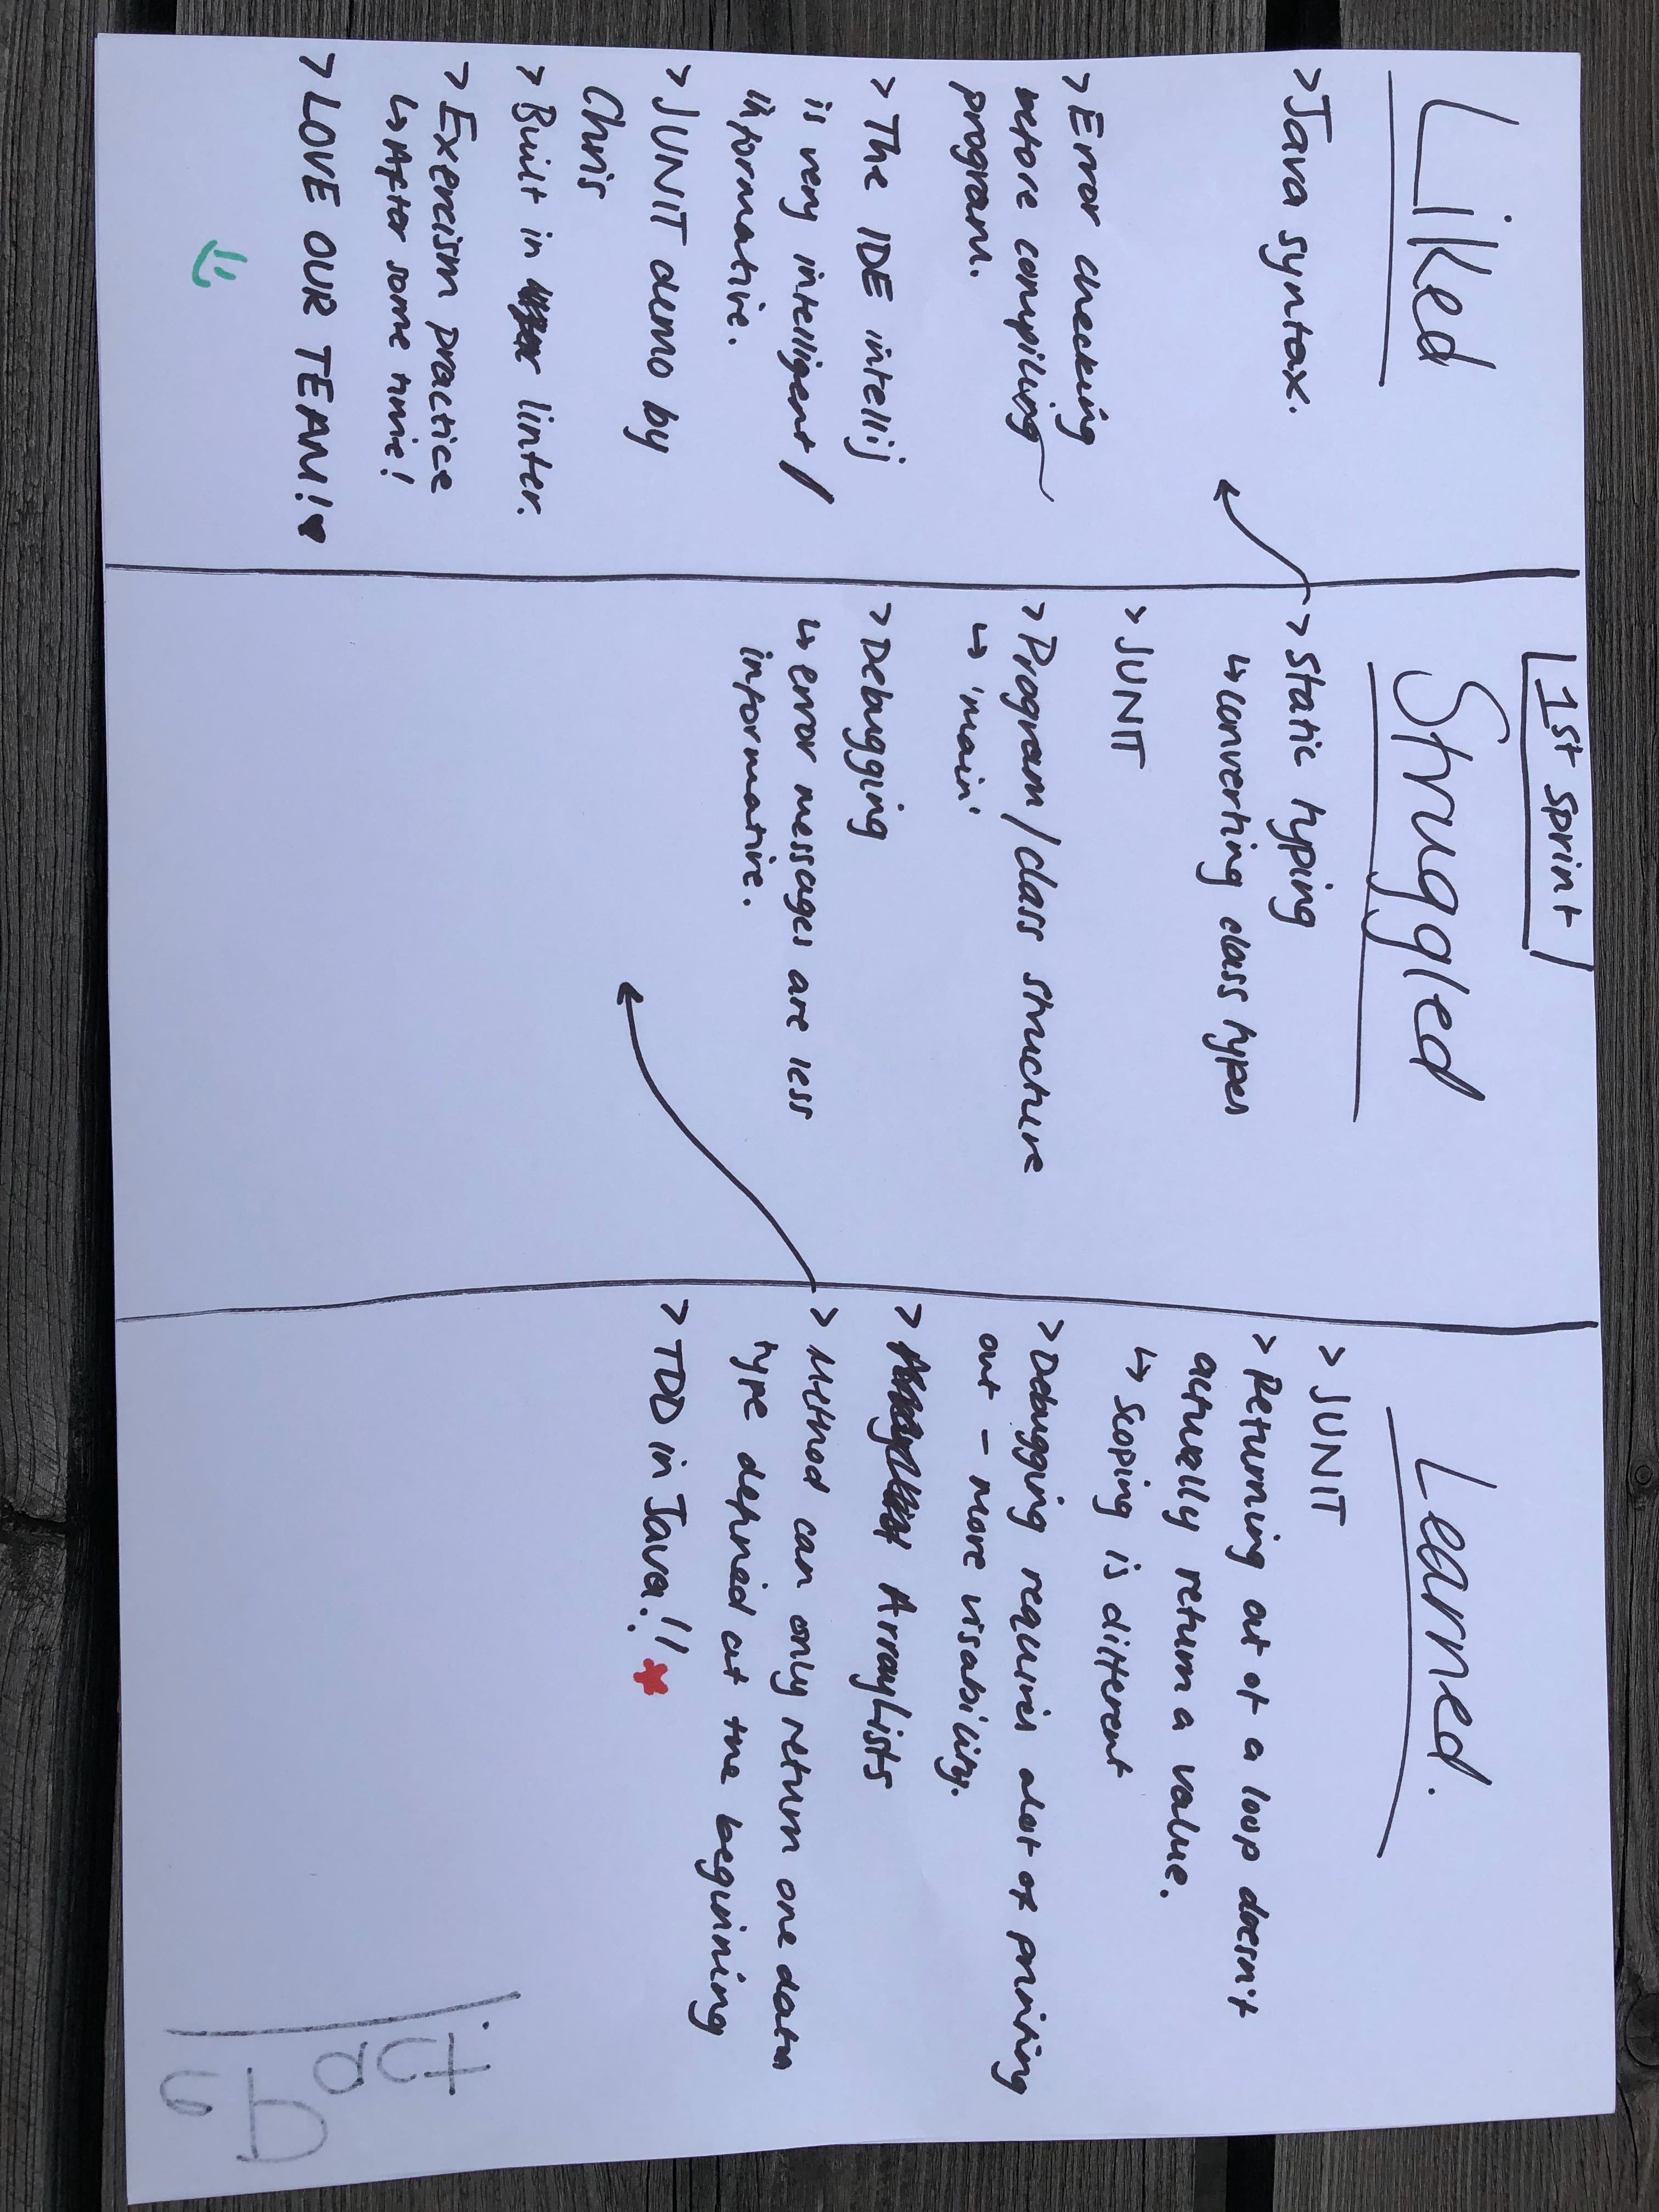 1st sprint
Liked
> Java syntax.
> Error checking
before compiling
program.
> The IDE intellij
is very intelligent /
informative.
> JUNIT demo by
Chris
> Built in linter.
> Exercism practice
↳ After some time!
> LOVE OUR TEAM! ♥
Struggled
> Static typing
↳ converting class types
> JUNIT
> Program/class structure
↳ 'main'
> Debugging
↳ error messages are less
informative.
Learned.
> JUNIT
> Returning out of a loop doesn't
actually return a value.
↳ Scoping is different
> Debugging requires alot of printing
out - more visability.
> ArrayLists
> Method can only return one data
type defined at the beginining
> TDD in Java!!